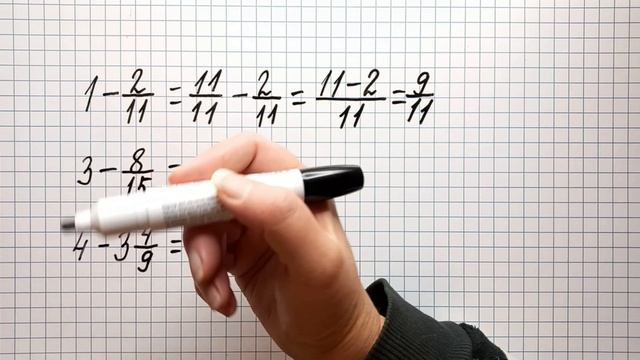 1 - 2/11 = 11/11 - 2/11 = (11-2)/11 = 9/11
3 - 8/15 =
4 - 3 /9 =